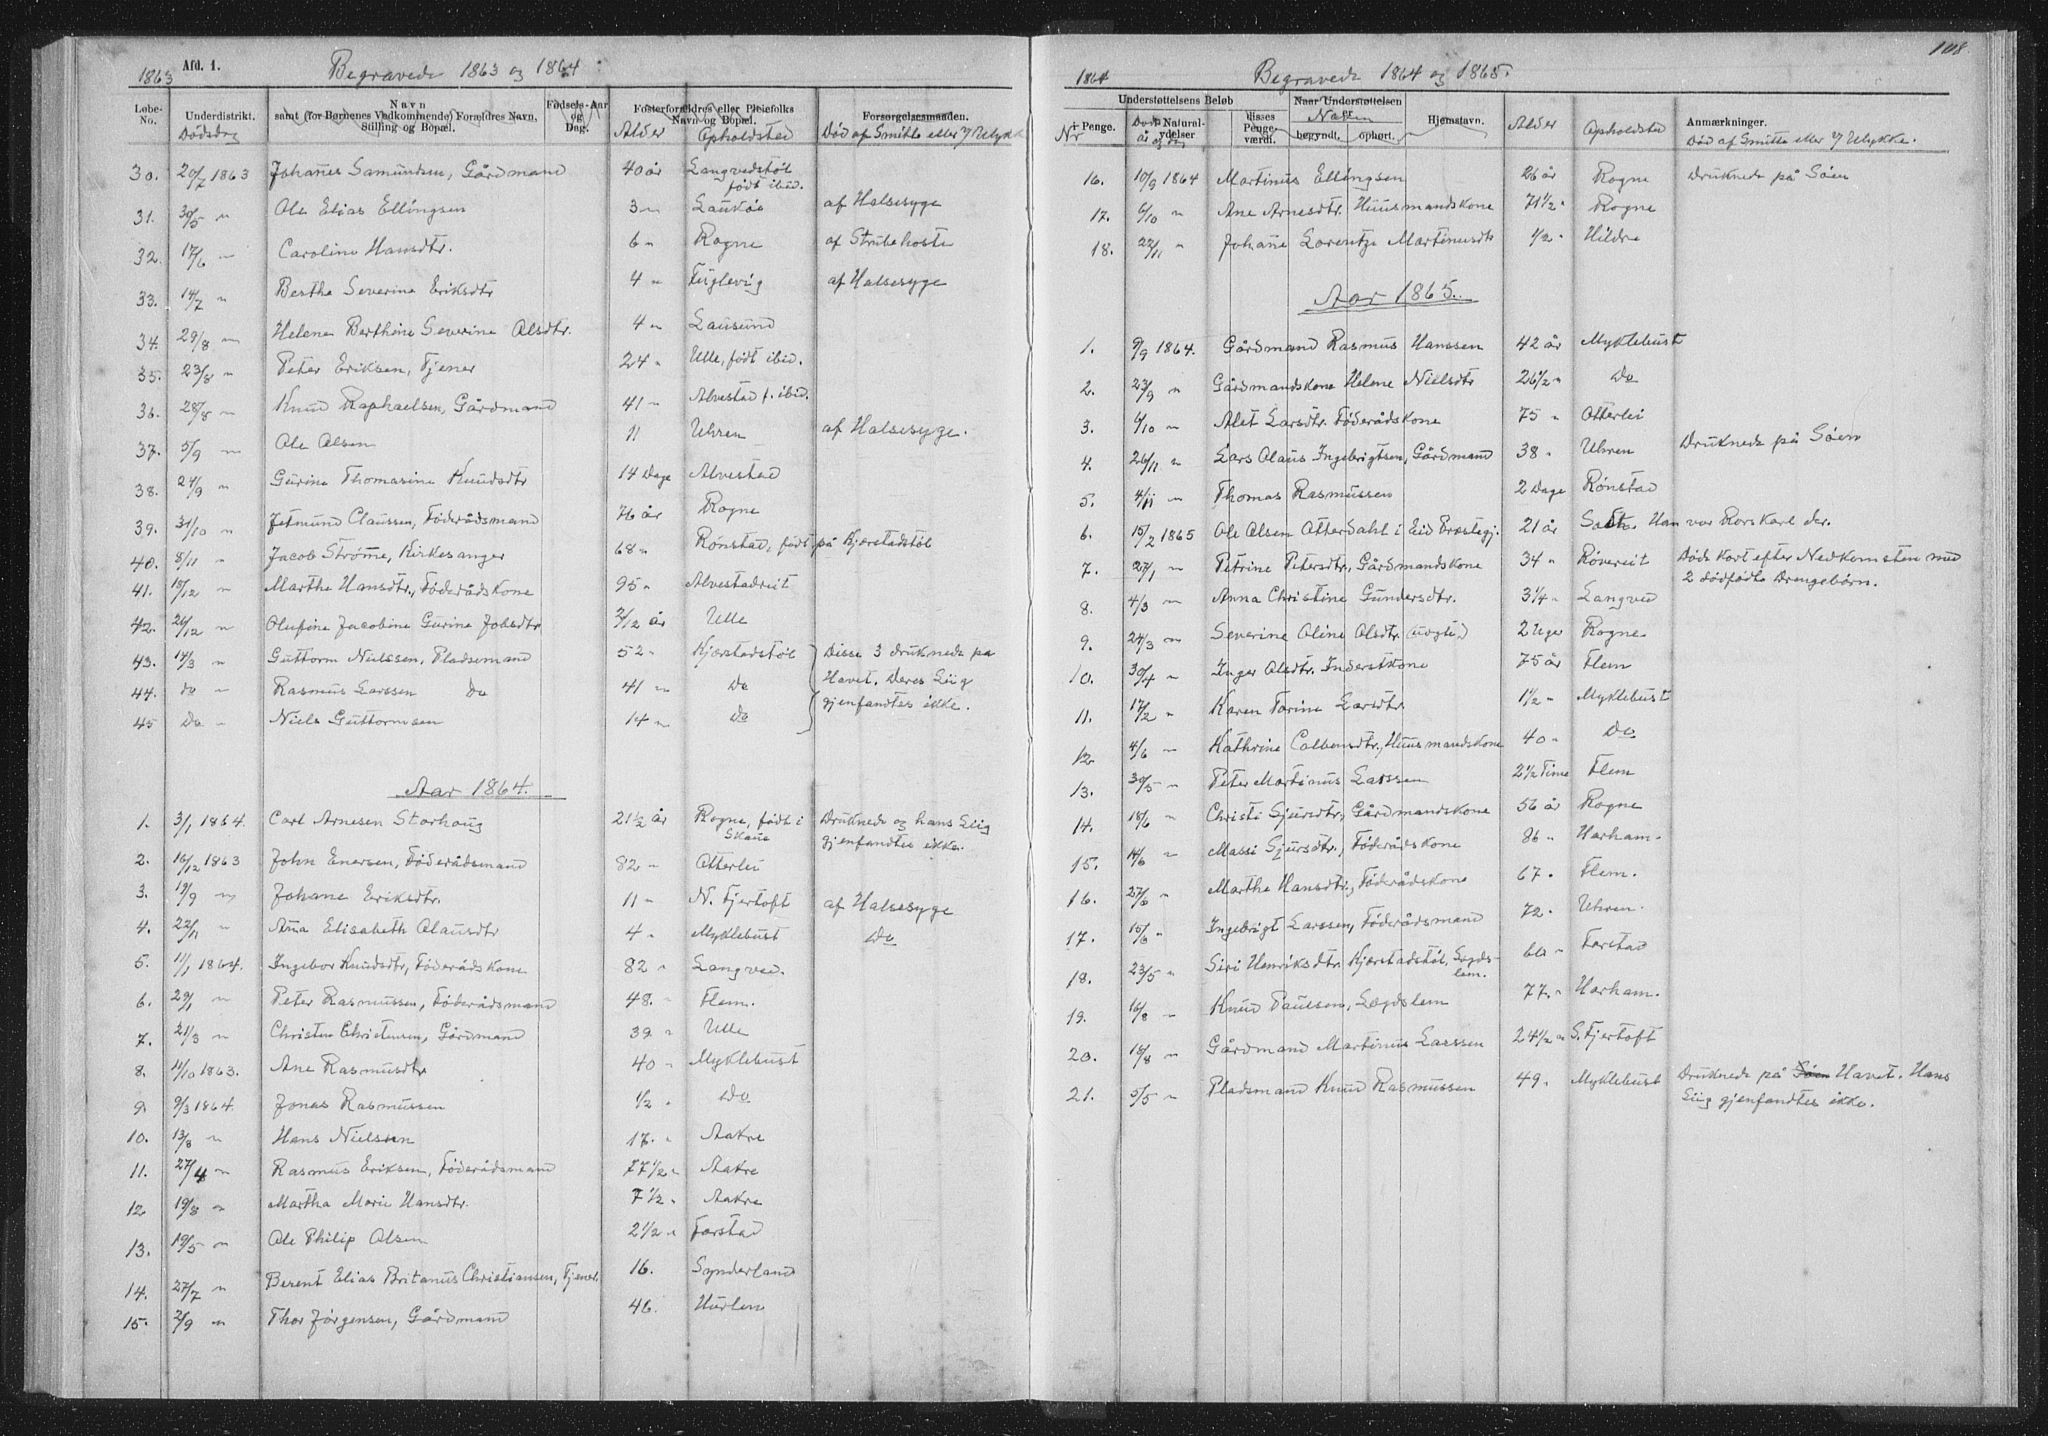 1863 Afd. 1. Begravede 1863 og 1864
Løbe-No. Underdistrikt. Navn samt (for Børnenes Vedkommende) Forældres Navn, Stilling og Bopæl. Fødsels-Aar og Dag. Fosterforældres eller Pleiefolks Navn og Bopæl. Forsørgelsesmaaden.
Dødsdag Alder Opholdsted Død af Smitte eller v/ Ulykke
30. 20/7 1863 Johanes Samundsen, Gårdmand 40 år Langvedstøl født ibid.
31. 30/5 " Ole Elias Ellingsen 3 " Laukøe af Halsesyge
32. 17/6 " Caroline Hansdtr. 6 " Rogne af Strubehoste
33. 14/7 " Berthe Severine Eriksdtr 4 " Fuglevig af Halsesyge
34. 29/8 " Helene Berthine Severine Olsdtr. 4 " Lausund
35. 23/8 " Peter Eriksen, Tjener 24 " Ulle, født ibid.
36. 28/8 " Knud Raphaelsen, Gårdmand 41 " Alvestad f. ibid.
37. 5/9 " Ole Olsen 11 Uhren af Halsesyge.
38. 24/9 " Gurine Thomasine Knudsdtr 14 Dage Alvestad
39. 31/10 " Jetmund Claussen, Föderådsmand 76 år Rogne
40. 8/11 " Jacob Strømme, Kirkesanger 68 " Rønstad, født på Kjærstadstøl
41. 19/12 " Marthe Hansdtr., Föderådskone 95 " Alvestadreit
42. 26/12 " Olufine Jacobine Gurine Johsdtr 2/12 år Ulle
43. 14/3 " Guttorm Nielssen, Pladsemand 52 " Kjærstadstøl Disse 3 druknede på
44. do " Rasmus Larssen Do 41 " Do Havet. Deres Liig
45 Do " Niels Guttormsen 14 " Do gjenfandtes ikke.
Aar 1864.
1. 3/1 1864. Carl Arnesen Storhaug 21 1/2 år Rogne, født i Skaue Druknede og hans Liig gjenfandtes ikke.
2. 16/12 1863 John Enersen, Föderådsmand 82 " Otterlei
3. 19/9 " Johane Eriksdtr. 11 " N. Fjertoft af Halsesyge
4. 22/11 " Ana Elisabeth Olausdtr 4 " Myklebust Do
5. 11/1 1864. Ingebor Knudsdtr, Föderådskone 82 " Langved.
6. 29/1 " Peter Rasmussen, Föderådsmand 48. " Flem.
7. 21/3 " Christen Christensen, Gårdmand 39 " Ulle
8. 11/10 1863. Ane Rasmusdtr 40 " Myklebust
9. 9/3 1864. Jonas Rasmussen 1/2 " Do
10. 13/8 " Hans Nielssen 17. " Aakre
11. 27/4 " Rasmus Eriksen, Föderådsmand 77 1/2 " Aakre
12 19/8 " Martha Marie Hansdtr. 7 1/2 " Aakre
13. 19/5 " Ole Philip Olsen 2 1/2 " Farstad
14. 27/7 " Berent Elias Britanus Christiansen, Tjener. 16. Synderland
15. 2/9 " Thor Jørgensen, Gårdmand 46. Hurlen
108.
1864 Begravede 1864 og 1865.
Understøttelsens Beløb Naar Understøttelsen er Hjemstavn. Anmærkninger.
i Penge. i Naturalydelser disses Pengeværdi. begyndt. ophørt.
Nr Døds år og dag Navn Alder Opholdsted Död af Smitte eller v/ Ulykke.
16. 10/9 1864 Martinus Ellingsen 26 år Rogne Druknede på Søen
17. 6/10 " Ane Arnesdtr. Huusmandskone 71 1/2 " Rogne
18. 22/11 " Johane Lorentze Martinusdtr 1/2 " Hildre
Aar 1865.
1. 9/9 1864. Gårdmand Rasmus Hanssen 42 år Myklebust
2. 23/9 " Gårdmandskone Helene Nielsdtr 26 1/2 " Do
3. 6/10 " Alet Larsdtr. Föderådskone 75 " Otterlei
4. 26/11 " Lars Olaus Ingebrigtsen, Gårdmand 38 " Uhren Druknede på Søen
5. 4/11 " Thomas Rasmussen 2 Dage Rønstad
6. 15/2 1865 Ole Olsen Otterdahl i Eid Præstegj. 21 år Han var Rorskarl der.
7. 27/1 " Petrine Petersdtr., Gårdmandskone 34 " Røvereit Døds kort efter Nedkomsten med 2 dödfödte Drengebörn.
8. 4/3 " Anna Christine Gundersdtr. 3 1/4 " Langved
9. 24/3 " Severine Oline Olsdtr. (uægte) 2 Uger Rogne
10. 30/4 " Inger Olsdtr. Inderstkone 75 år Flem
11. 17/2 " Karen Torine Larsdtr. 1 1/2 " Myklebust
12. 4/6 " Kathrine Colbensdtr., Huusmandskone 40 " Do
13. 30/5 " Peter Martinus Larssen 2 1/2 Time Flem
14. 18/6 " Christi Sjursdtr., Gårdmandskone 56 år Rogne
15. 14/6 " Massi Sjursdtr., Föderådskone 86 " Harham.
16. 27/6 " Marthe Hansdtr., Föderådskone 67 " Flem.
17. 15/6 " Ingebrigt Larssen, Föderådsmand 72. " Uhren.
18. 23/5 " Siri Henriksdtr Kjærstadstøl, Lægdslem. 60 " Farstad
19. 16/8 " Knud Paulsen, Lægdslem 77. " Harham.
20. 18/8 " Gårdmand Martinus Larssen 24 1/2 " S. Fjertoft
21. 5/5 " Pladsmand Knud Rasmussen 49. " Myklebust Druknede på Søen Havet. Hans Liig gjenfandtes ikke.